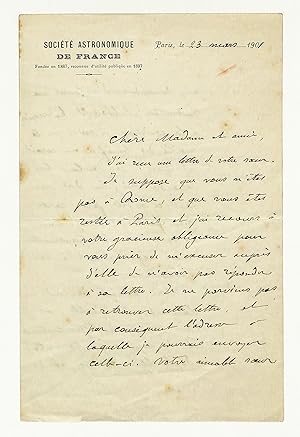 SOCIÉTÉ ASTRONOMIQUE
DE FRANCE
Fondée en 1887, reconnue d'utilité publique en 1897
Paris, le 23 mars 1901
Chère Madame et amie,
J'ai reçu une lettre de votre sœur.
Je suppose que vous n'êtes
pas à Rome, et que vous êtes
restée à Paris et j'ai recours à
votre gracieuse obligeance pour
vous prier de m'excuser auprès
d'elle de n'avoir pas répondu
à sa lettre. Je ne parviens pas
à retrouver cette lettre, et
par conséquent l'adresse à
laquelle je pourrais envoyer
celle-ci. Votre aimable sœur